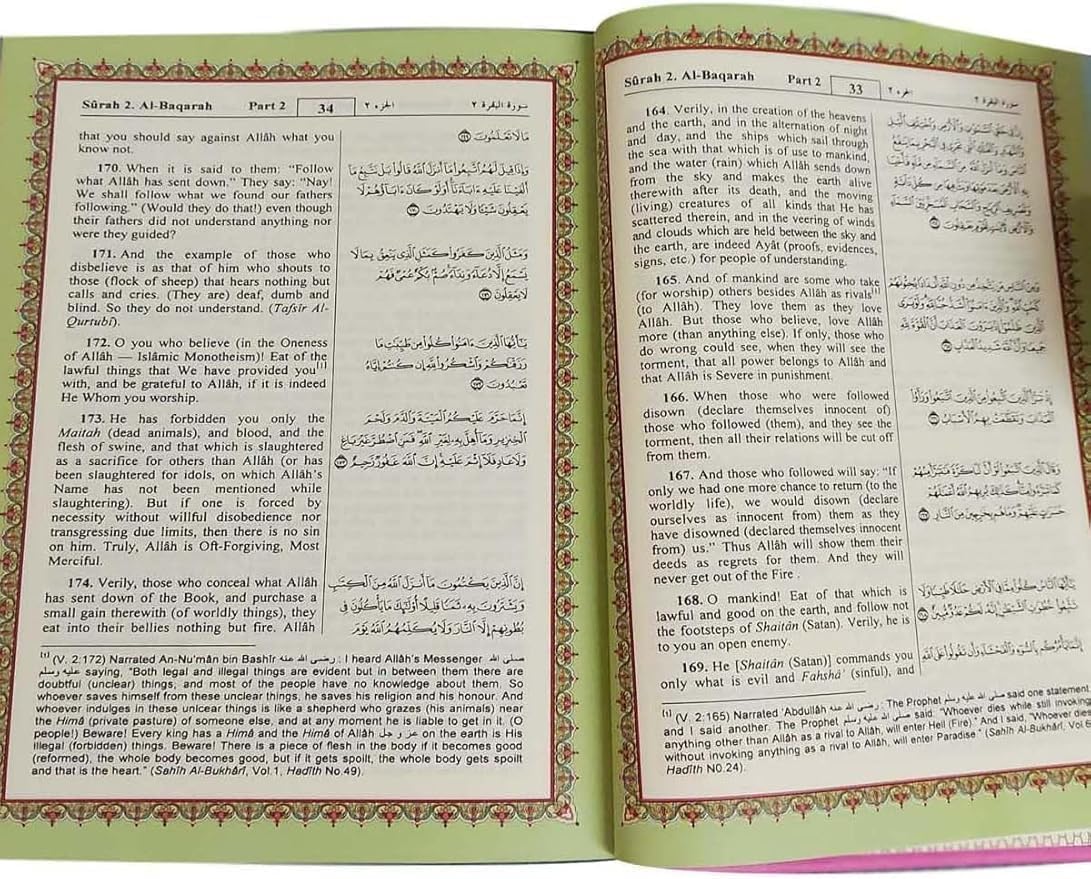 Sûrah 2. Al-Baqarah Part 2 33 الجزء ٢ سورة البقرة ٢
164. Verily, in the creation of the heavens
and the earth, and in the alternation of night
and day, and the ships which sail through
the sea with that which is of use to mankind,
and the water (rain) which Allâh sends down
from the sky and makes the earth alive
therewith after its death, and the moving
(living) creatures of all kinds that He has
scattered therein, and in the veering of winds
and clouds which are held between the sky and
the earth, are indeed Ayât (proofs, evidences,
signs, etc.) for people of understanding.
165. And of mankind are some who take
(for worship) others besides Allâh as rivals[1]
(to Allâh). They love them as they love
Allâh. But those who believe, love Allâh
more (than anything else). If only, those who
do wrong could see, when they will see the
torment, that all power belongs to Allâh and
that Allâh is Severe in punishment.
166. When those who were followed
disown (declare themselves innocent of)
those who followed (them), and they see the
torment, then all their relations will be cut off
from them.
167. And those who followed will say: “If
only we had one more chance to return (to the
worldly life), we would disown (declare
ourselves as innocent from) them as they
have disowned (declared themselves innocent
from) us.” Thus Allâh will show them their
deeds as regrets for them. And they will
never get out of the Fire .
168. O mankind! Eat of that which is
lawful and good on the earth, and follow not
the footsteps of Shaitân (Satan). Verily, he is
to you an open enemy.
169. He [Shaitân (Satan)] commands you
only what is evil and Fahshâ’ (sinful), and
إِنَّ فِي خَلْقِ السَّمَٰوَٰتِ وَالْأَرْضِ وَاخْتِلَٰفِ الَّيْلِ
وَالنَّهَارِ وَالْفُلْكِ الَّتِي تَجْرِي فِي الْبَحْرِ بِمَا يَنفَعُ
النَّاسَ وَمَا أَنزَلَ اللَّهُ مِنَ السَّمَاءِ مِن مَّاءٍ فَأَحْيَا
بِهِ الْأَرْضَ بَعْدَ مَوْتِهَا وَبَثَّ فِيهَا مِن كُلِّ دَابَّةٍ
وَتَصْرِيفِ الرِّيَٰحِ وَالسَّحَابِ الْمُسَخَّرِ بَيْنَ السَّمَاءِ
وَالْأَرْضِ لَءَايَٰتٍ لِّقَوْمٍ يَعْقِلُونَ ١٦٤
وَمِنَ النَّاسِ مَن يَتَّخِذُ مِن دُونِ اللَّهِ أَندَادًا يُحِبُّونَهُمْ
كَحُبِّ اللَّهِ وَالَّذِينَ ءَامَنُوا أَشَدُّ حُبًّا لِّلَّهِ وَلَوْ يَرَى
الَّذِينَ ظَلَمُوا إِذْ يَرَوْنَ الْعَذَابَ أَنَّ الْقُوَّةَ لِلَّهِ
جَمِيعًا وَأَنَّ اللَّهَ شَدِيدُ الْعَذَابِ ١٦٥
إِذْ تَبَرَّأَ الَّذِينَ اتُّبِعُوا مِنَ الَّذِينَ اتَّبَعُوا وَرَأَوُا
الْعَذَابَ وَتَقَطَّعَتْ بِهِمُ الْأَسْبَابُ ١٦٦
وَقَالَ الَّذِينَ اتَّبَعُوا لَوْ أَنَّ لَنَا كَرَّةً فَنَتَبَرَّأَ مِنْهُمْ
كَمَا تَبَرَّءُوا مِنَّا كَذَٰلِكَ يُرِيهِمُ اللَّهُ أَعْمَٰلَهُمْ
حَسَرَٰتٍ عَلَيْهِمْ وَمَا هُم بِخَٰرِجِينَ مِنَ النَّارِ ١٦٧
يَٰأَيُّهَا النَّاسُ كُلُوا مِمَّا فِي الْأَرْضِ حَلَٰلًا طَيِّبًا وَلَا
تَتَّبِعُوا خُطُوَٰتِ الشَّيْطَٰنِ إِنَّهُ لَكُمْ عَدُوٌّ مُّبِينٌ ١٦٨
إِنَّمَا يَأْمُرُكُم بِالسُّوءِ وَالْفَحْشَاءِ وَأَن تَقُولُوا عَلَى اللَّهِ
[1] (V. 2:165) Narrated ‘Abdullâh رضي الله عنه : The Prophet صلى الله عليه وسلم said one statement
and I said another. The Prophet صلى الله عليه وسلم said: “Whoever dies while still invoking
anything other than Allâh as a rival to Allâh, will enter Hell (Fire).” And I said, “Whoever dies
without invoking anything as a rival to Allâh, will enter Paradise.” (Sahîh Al-Bukhârî, Vol.6,
Hadîth N0.24).
Sûrah 2. Al-Baqarah Part 2 34 الجزء ٢ سورة البقرة ٢
that you should say against Allâh what you
know not.
170. When it is said to them: “Follow
what Allâh has sent down.” They say: “Nay!
We shall follow what we found our fathers
following.” (Would they do that!) even though
their fathers did not understand anything nor
were they guided?
171. And the example of those who
disbelieve is as that of him who shouts to
those (flock of sheep) that hears nothing but
calls and cries. (They are) deaf, dumb and
blind. So they do not understand. (Tafsîr Al-
Qurtubî).
172. O you who believe (in the Oneness
of Allâh — Islâmic Monotheism)! Eat of the
lawful things that We have provided you[1]
with, and be grateful to Allâh, if it is indeed
He Whom you worship.
173. He has forbidden you only the
Maitah (dead animals), and blood, and the
flesh of swine, and that which is slaughtered
as a sacrifice for others than Allâh (or has
been slaughtered for idols, on which Allâh’s
Name has not been mentioned while
slaughtering). But if one is forced by
necessity without willful disobedience nor
transgressing due limits, then there is no sin
on him. Truly, Allâh is Oft-Forgiving, Most
Merciful.
174. Verily, those who conceal what Allâh
has sent down of the Book, and purchase a
small gain therewith (of worldly things), they
eat into their bellies nothing but fire. Allâh
مَا لَا تَعْلَمُونَ ١٦٩
وَإِذَا قِيلَ لَهُمُ اتَّبِعُوا مَا أَنزَلَ اللَّهُ قَالُوا بَلْ نَتَّبِعُ مَا
أَلْفَيْنَا عَلَيْهِ ءَابَاءَنَا أَوَلَوْ كَانَ ءَابَاؤُهُمْ لَا
يَعْقِلُونَ شَيْئًا وَلَا يَهْتَدُونَ ١٧٠
وَمَثَلُ الَّذِينَ كَفَرُوا كَمَثَلِ الَّذِي يَنْعِقُ بِمَا لَا
يَسْمَعُ إِلَّا دُعَاءً وَنِدَاءً صُمٌّ بُكْمٌ عُمْيٌ فَهُمْ
لَا يَعْقِلُونَ ١٧١
يَٰأَيُّهَا الَّذِينَ ءَامَنُوا كُلُوا مِن طَيِّبَٰتِ مَا
رَزَقْنَٰكُمْ وَاشْكُرُوا لِلَّهِ إِن كُنتُمْ إِيَّاهُ
تَعْبُدُونَ ١٧٢
إِنَّمَا حَرَّمَ عَلَيْكُمُ الْمَيْتَةَ وَالدَّمَ وَلَحْمَ
الْخِنزِيرِ وَمَا أُهِلَّ بِهِ لِغَيْرِ اللَّهِ فَمَنِ اضْطُرَّ غَيْرَ بَاغٍ
وَلَا عَادٍ فَلَا إِثْمَ عَلَيْهِ إِنَّ اللَّهَ غَفُورٌ رَّحِيمٌ ١٧٣
إِنَّ الَّذِينَ يَكْتُمُونَ مَا أَنزَلَ اللَّهُ مِنَ الْكِتَٰبِ
وَيَشْتَرُونَ بِهِ ثَمَنًا قَلِيلًا أُولَٰئِكَ مَا يَأْكُلُونَ فِي
بُطُونِهِمْ إِلَّا النَّارَ وَلَا يُكَلِّمُهُمُ اللَّهُ يَوْمَ
[1] (V. 2:172) Narrated An-Nu‘mân bin Bashîr رضي الله عنه : I heard Allâh’s Messenger صلى الله
عليه وسلم saying, “Both legal and illegal things are evident but in between them there are
doubtful (unclear) things, and most of the people have no knowledge about them. So
whoever saves himself from these unclear things, he saves his religion and his honour. And
whoever indulges in these unlcear things is like a shepherd who grazes (his animals) near
the Himâ (private pasture) of someone else, and at any moment he is liable to get in it. (O
people!) Beware! Every king has a Himâ and the Himâ of Allâh عز و جل on the earth is His
illegal (forbidden) things. Beware! There is a piece of flesh in the body if it becomes good
(reformed), the whole body becomes good, but if it gets spoilt, the whole body gets spoilt
and that is the heart.” (Sahîh Al-Bukhârî, Vol.1, Hadîth No.49).